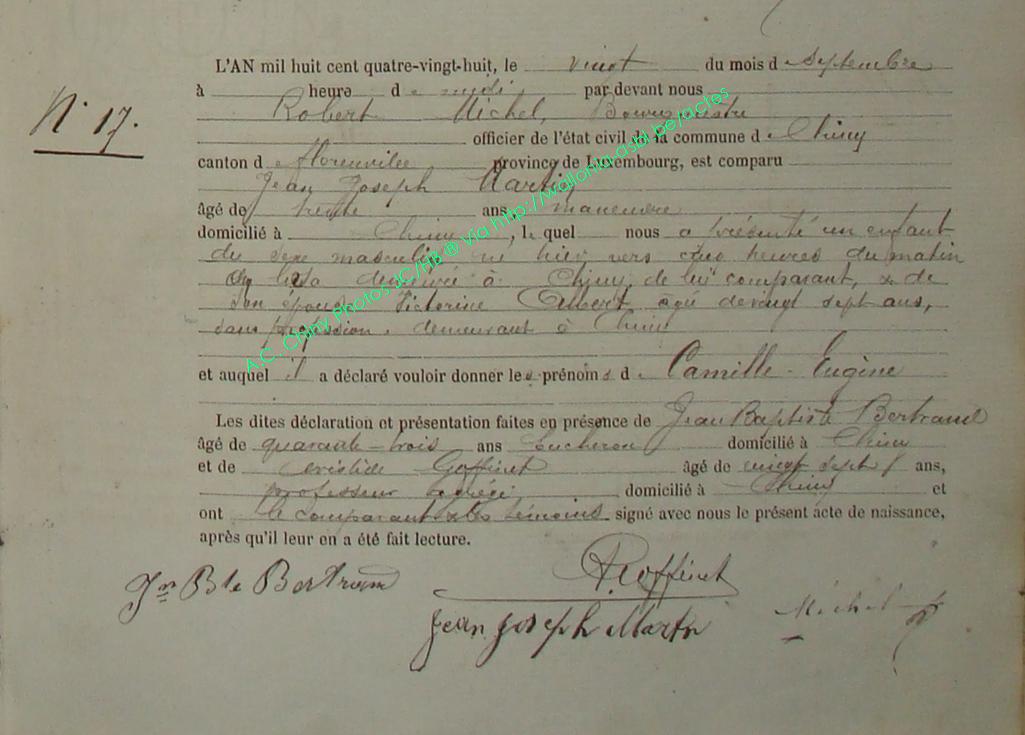 N° 17.
L'AN mil huit cent quatre-vingt-huit, le vingt du mois de Septembre
à heure de midi par devant nous
Robert Michel, Bourgmestre
officier de l'état civil de la commune de Chiny
canton de Florenville province de Luxembourg, est comparu
Jean Joseph Martin
âgé de trente ans, manoeuvre
domicilié à Chiny, lequel nous a présenté un enfant
du sexe masculin né hier vers heures du matin
en sa demeure à Chiny, de lui comparant, & de
son épouse Victorine Gilbert, agée de vingt sept ans,
sans profession, demeurant à Chiny
et auquel il a déclaré vouloir donner les prénoms de Camille-Eugène
Les dites déclaration et présentation faites en présence de Jean Baptiste Bertrand
âgé de quarante-trois ans bucheron domicilié à Chiny
et de Aristide Goffinet âgé de vingt sept ans,
professeur agrégé, domicilié à Chiny et
ont le comparant & les témoins signé avec nous le présent acte de naissance,
après qu'il leur en a été fait lecture.
Jn Bte Bertrand
A Goffinet
Jean joseph Martin
Michel
A.C. Chiny Photos JC/HB ® via http://wallonia-asbl.be/actes